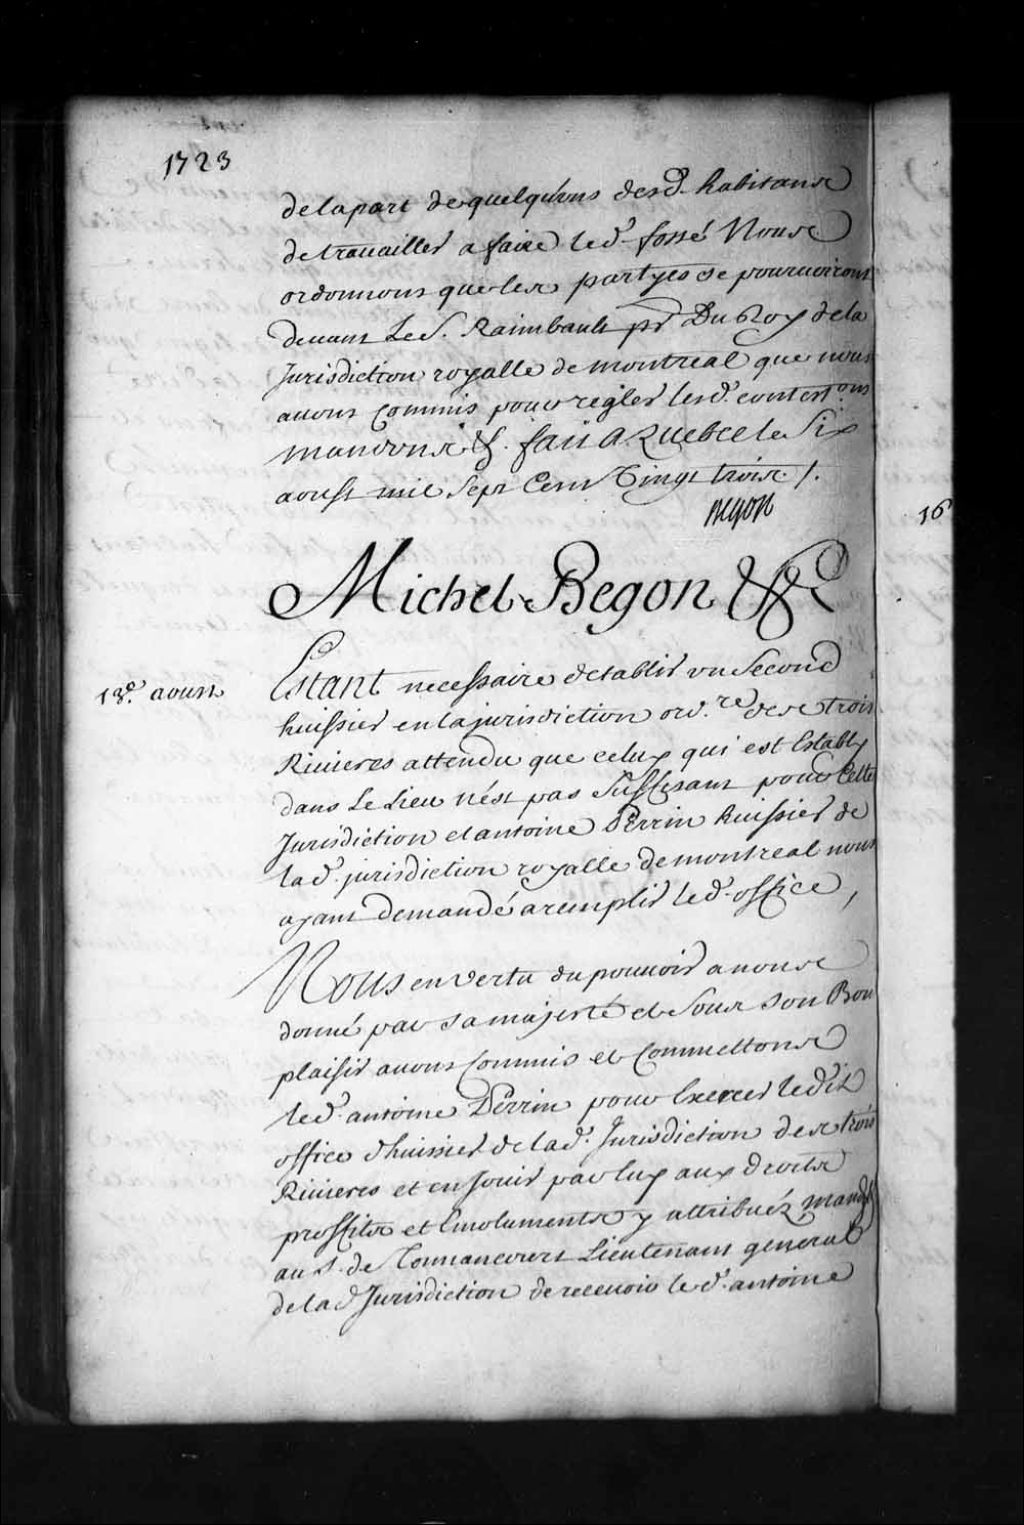 1723
de la part de quelqu'uns desd. habitans
de travailler a faire led. fossé Nous
ordonnons que les partyes se pourvoiront
devant Le S. Raimbault pr. Du Roy de la
Jurisdiction royalle de montreal que nous
avons Commis pour regler lesd. contestons
mandons &c. fait a Quebec le Six
aoust mil Sept Cent Vingt trois /.
Begon
16
Michel Begon &c
13e. aoust
Estant necessaire detablir un Second
huissier en la jurisdiction ord.re des trois
Rivieres attendu que celuy qui est Estably
dans Le Lieu n'est pas Suffisant pour Cette
Jurisdiction et antoine Perrin huissier de
la d. jurisdiction royalle de montreal nous
ayant demandé a remplir led. office,
Nous en vertu du pouvoir a nous
donné par sa majesté et Sous son Bon
plaisir avons Commis et Commettons
led. antoine Perrin pour Exercer ledit
office d'huissier de lad. Jurisdiction des trois
Rivieres et en Jouir par luy aux droits
proffits et Emoluments y attribuéz mands
au S. de Tonnancourt Lieutenant general
de la d Jurisdiction de recevoir led. antoine